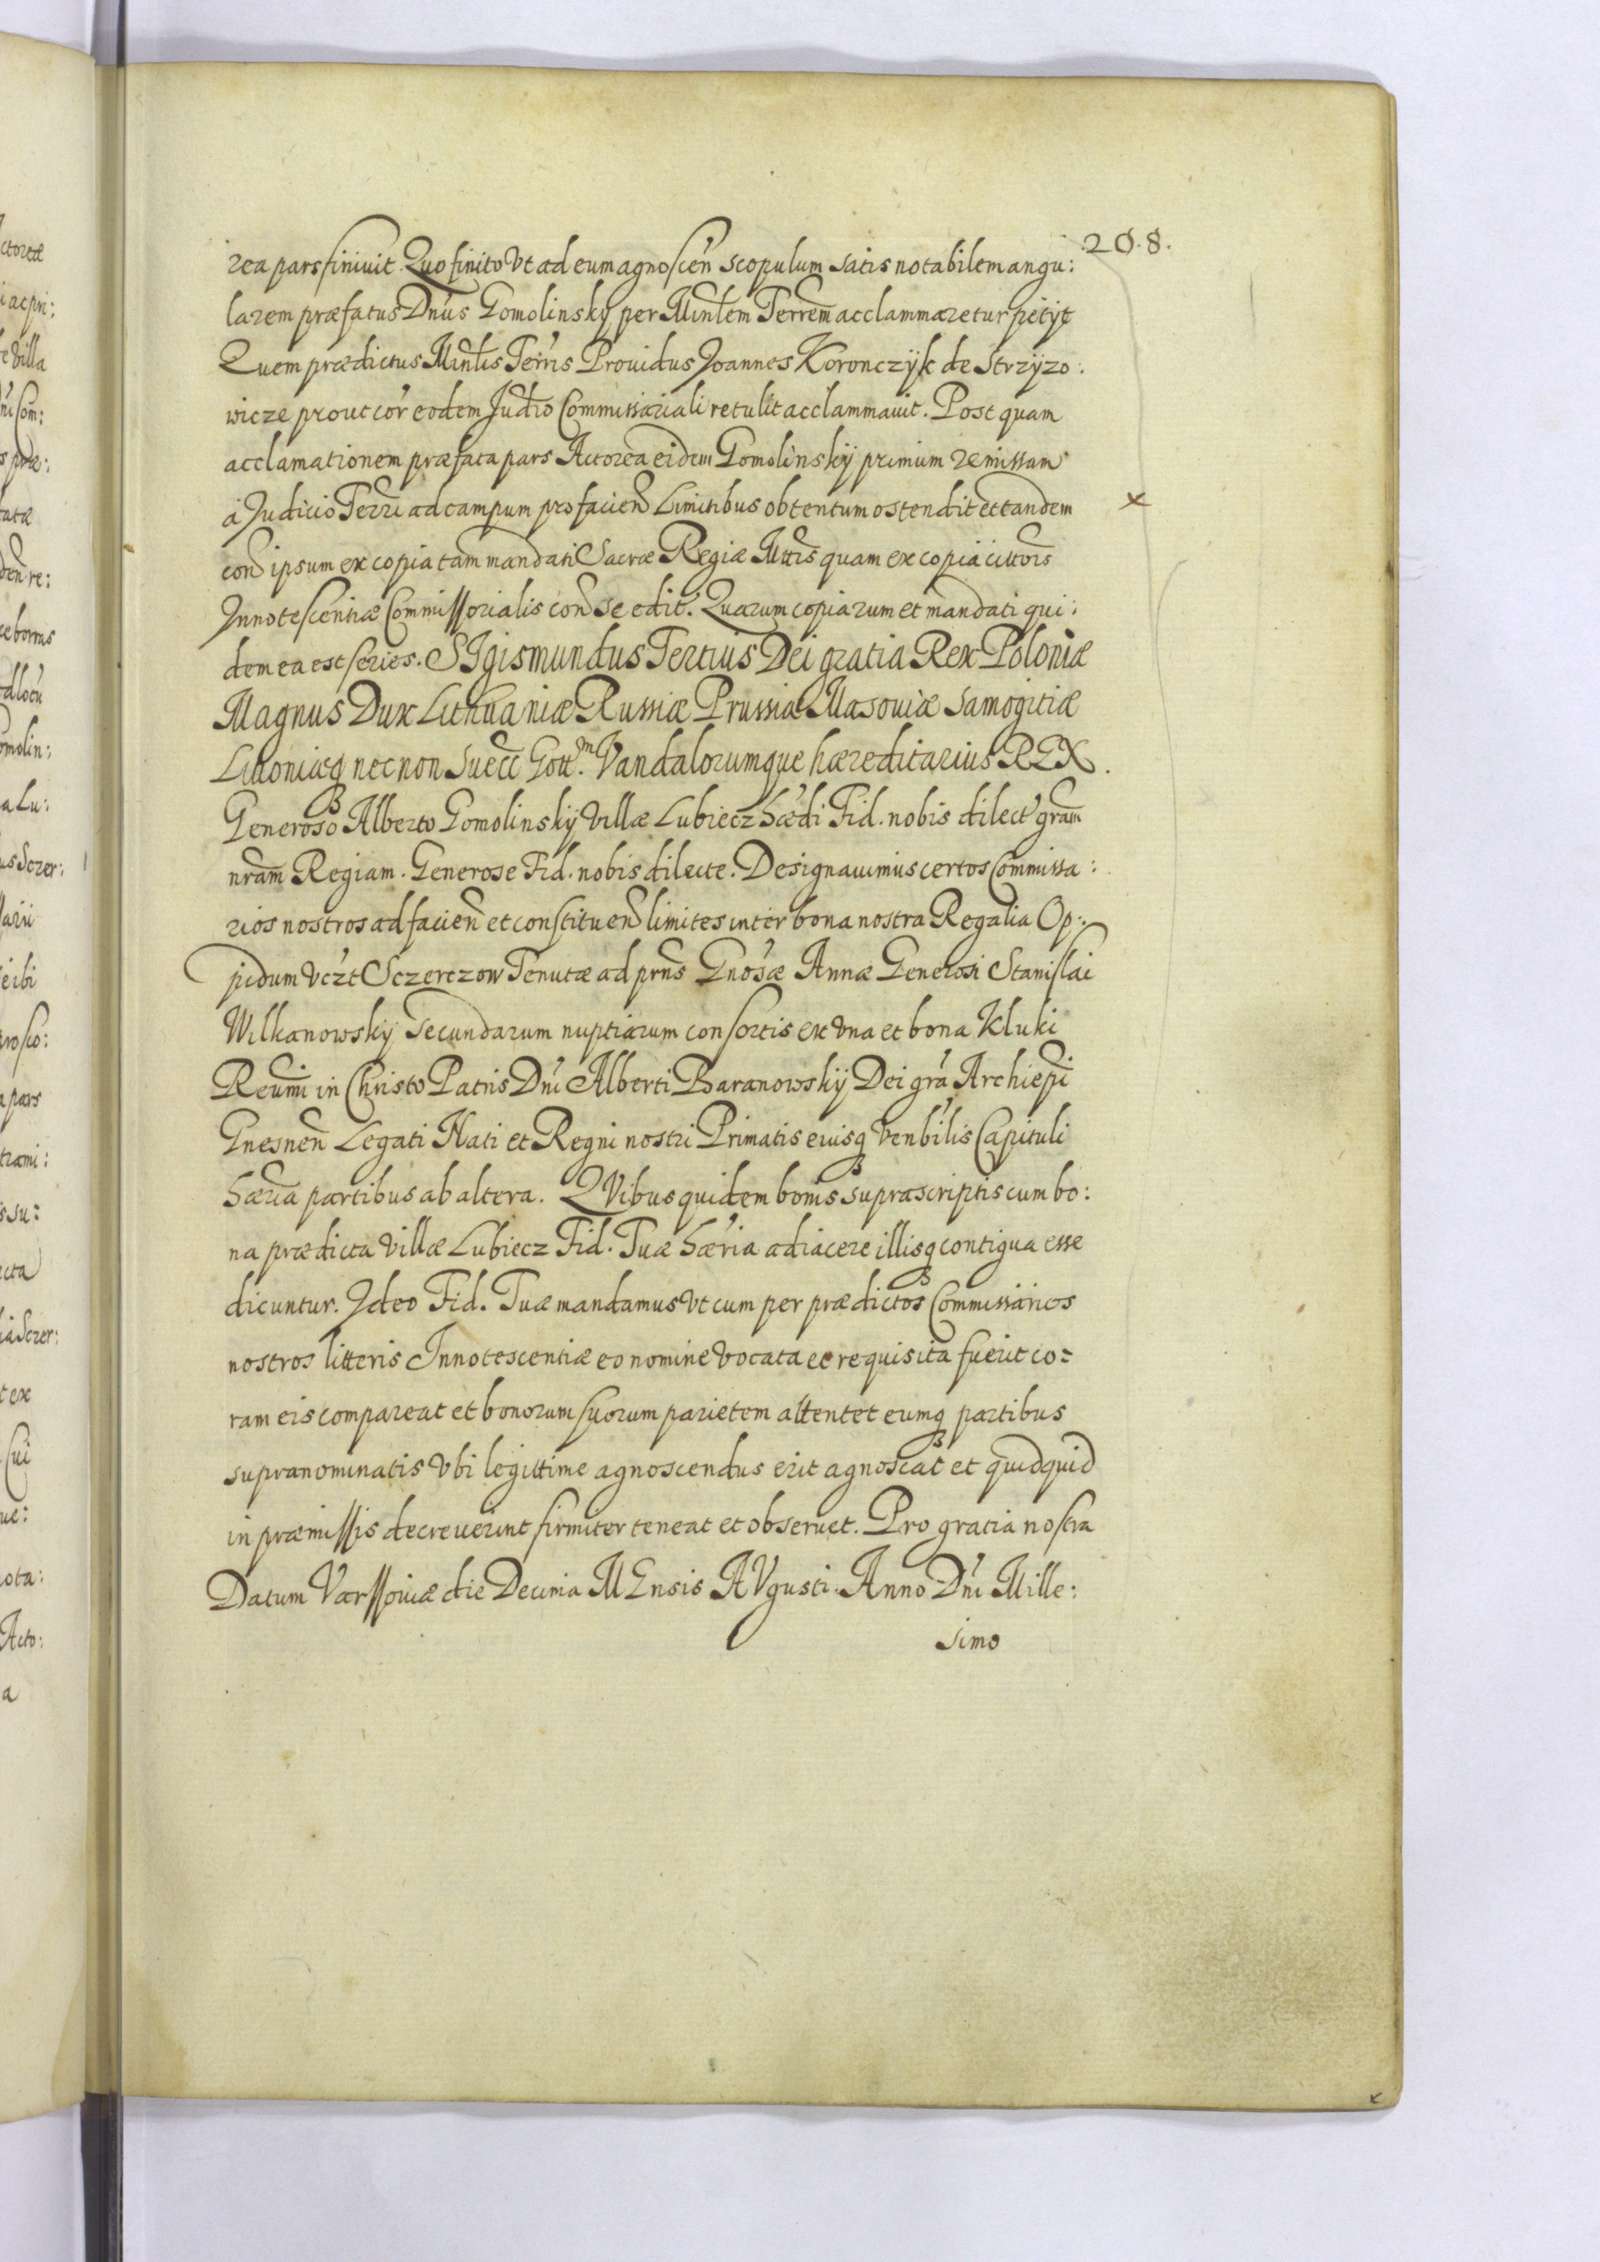 208.
rea pars finiuit. Quo finito Vt ad eum agnoscen̄ scopulum satis notabilem angu:
larem præfatus Dn̄us Gomolinsky per Minlem Terrem acclammaretur petyt
Quem prædictus Minlis Terris Prouidus Joannes Koronczÿk de Strzÿzo:
wicze prout cor̄ eodem Judio Commissariali retulit acclammauit. Post quam
acclamationem præfata pars Actorea eidem Gomolinskÿ primum remissam
a Judicio Terri ad campum pro facien̄ Limitibus obtentum ostendit et tandem
con̄ ipsum ex copia tam mandati Sacræ Regiæ Mttis quam ex copia
Innotescentiæ Commissorialis con̄ se edit. Quarum copiarum et mandati qui:
dem ea est series. SIgismundus Tertius Dei gratia Rex Poloniæ
Magnus Dux Lithuaniæ Russiæ Prussiæ Masouiæ Samogitiæ
Liuoniæq nec non Suecc Gott.m Vandalorumque hæreditarius REX.
Generoso Alberto Gomolinskÿ Villæ Lubiecz hædi Fid. nobis dilect gram
nram Regiam. Generose Fid. nobis dilecte. Designauimus certos Commissa:
rios nostros ad facien̄ et constituen̄ limites inter bona nostra Regalia Op:
pidum vczt Sczerczow Tenutæ ad prns Gnosæ Annæ Generosi Stanislai
Wilkanowskÿ Secundarum nuptiarum consortis ex Vna et bona Kluki
Reumi in Christo Patris Dni Alberti Baranowskÿ Dei gra Archiepi
Gnesnen̄ Legati Nati et Regni nostri Primatis euisq Venbilis Capituli
hæria partibus ab altera. QVibus quidem bonis suprascriptis cum bo:
na prædicta Villæ Lubiecz Fid. Tuæ hæria adiacere illisq contigua esse
dicuntur. Ideo Fid. Tuæ mandamus Vt cum per prædictos Commissarios
nostros litteris Innotescentiæ eo nomine Vocata et requisita fuerit co:
ram eis compareat et bonorum suorum parietem attentet eumq partibus
supranominatis Vbi legittime agnoscendus erit agnoscat et quidquid
in præmissis decreuerint firmiter teneat et obseruet. Pro gratia nostra
Datum Varssouiæ die Decima MEnsis AVgusti. Anno Dni Mille:
simo